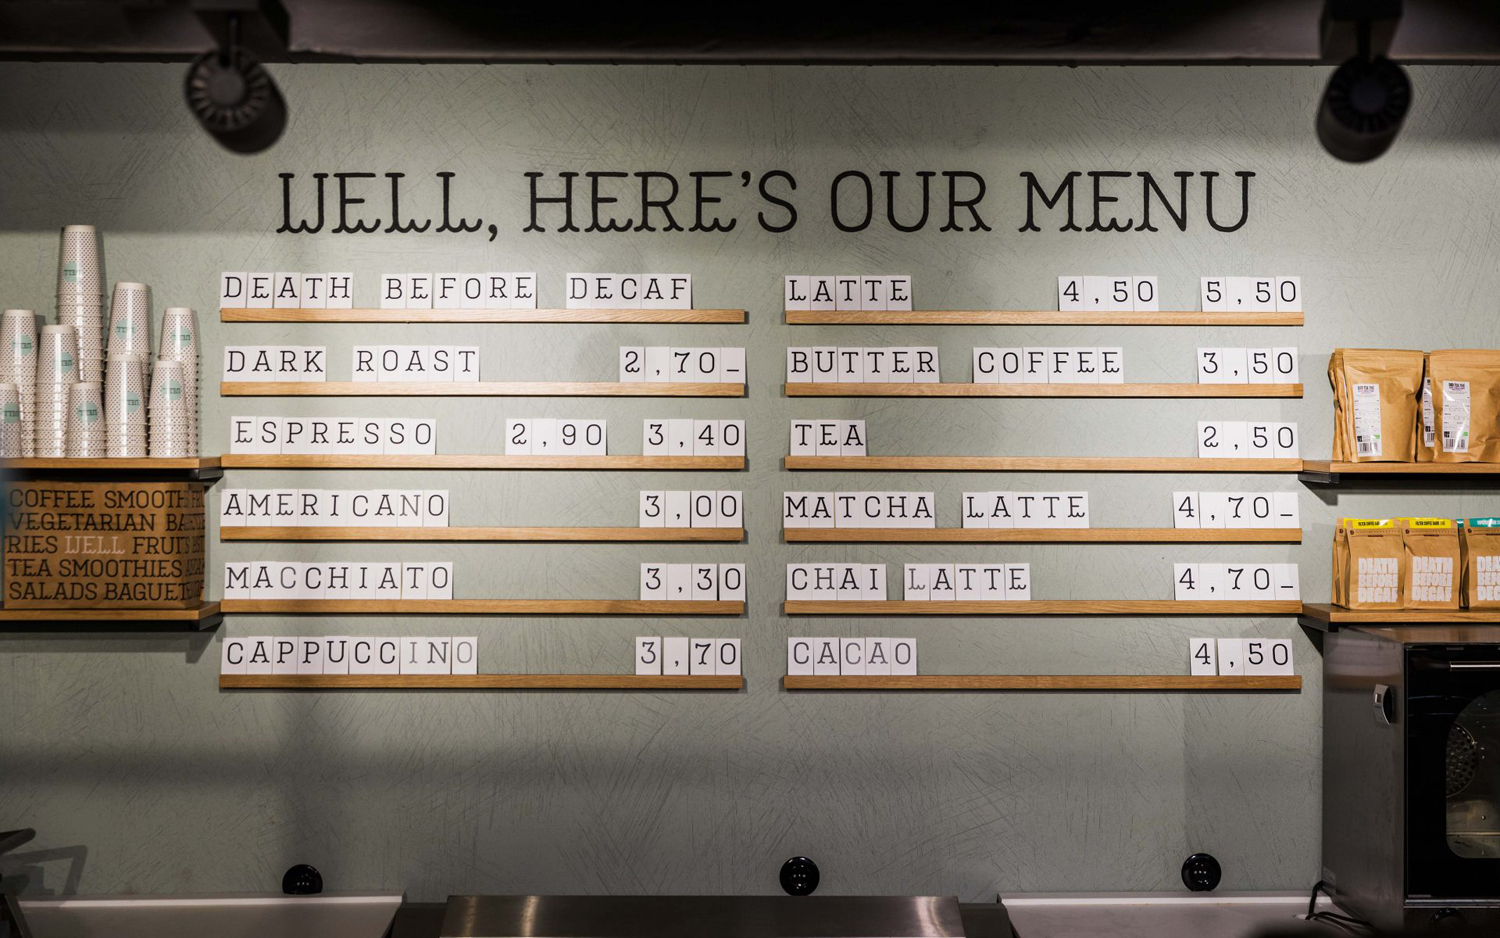 WELL, HERE'S OUR MENU
DEATH BEFORE DECAF
DARK ROAST 2,70_
ESPRESSO 2,90 3,40
AMERICANO 3,00
MACCHIATO 3,30
CAPPUCCINO 3,70
LATTE 4,50 5,50
BUTTER COFFEE 3,50
TEA 2,50
MATCHA LATTE 4,70_
CHAI LATTE 4,70_
CACAO 4,50
COFFEE SMOOTH
VEGETARIAN
RIES WELL FRUITS
TEA SMOOTHIES
SALADS BAGUET
DEATH
BEFORE
DECAF
DEATH
BEFORE
DECAF